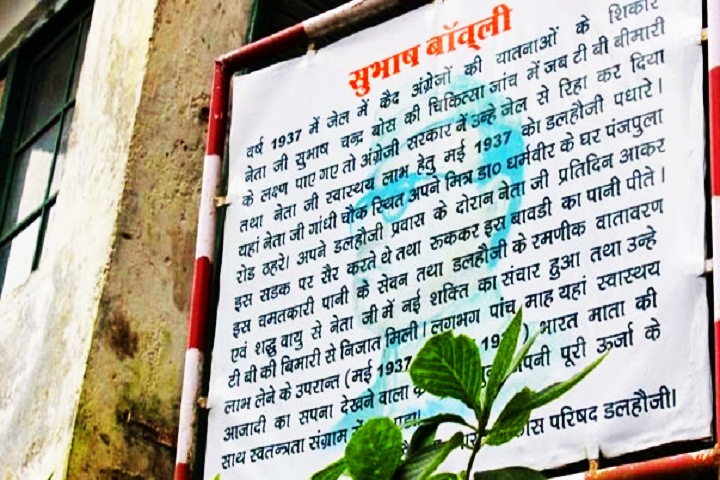 सुभाष बॉव्ली
वर्ष 1937 में जेल में कैद अंग्रेजों की यातनाओं के शिकार
नेता जी सुभाष चन्द्र बोस की चिकित्सा जांच में जब टी बी बीमारी
के लक्ष्ण पाए गए तो अंग्रेजी सरकार नें उन्हे जेल से रिहा कर दिया
तथा नेता जी स्वास्थय लाभ हेतु मई 1937 को डलहौजी पधारे।
यहां नेता जी गांधी चौक स्थित अपने मित्र डा० धर्मवीर के घर पंजपुला
रोड ठहरे। अपने डलहौजी प्रवास के दोरान नेता जी प्रतिदिन आकर
इस सडक पर सैर करते थे तथा रूककर इस बावडी का पानी पीते।
इस चमतकारी पानी के सेवन तथा डलहौजी के रमणीक वातावरण
एवं शद्ध वायु से नेता जी में नई शक्ति का संचार हुआ तथा उन्हे
टी बी की बिमारी से निजात मिली। लगभग पांच माह यहां स्वास्थय
लाभ लेने के उपरान्त (मई 1937 भारत माता की
आजादी का सपना देखने वाला पूरी ऊर्जा के
साथ स्वतन्त्रता संग्राम में
परिषद डलहौजी।